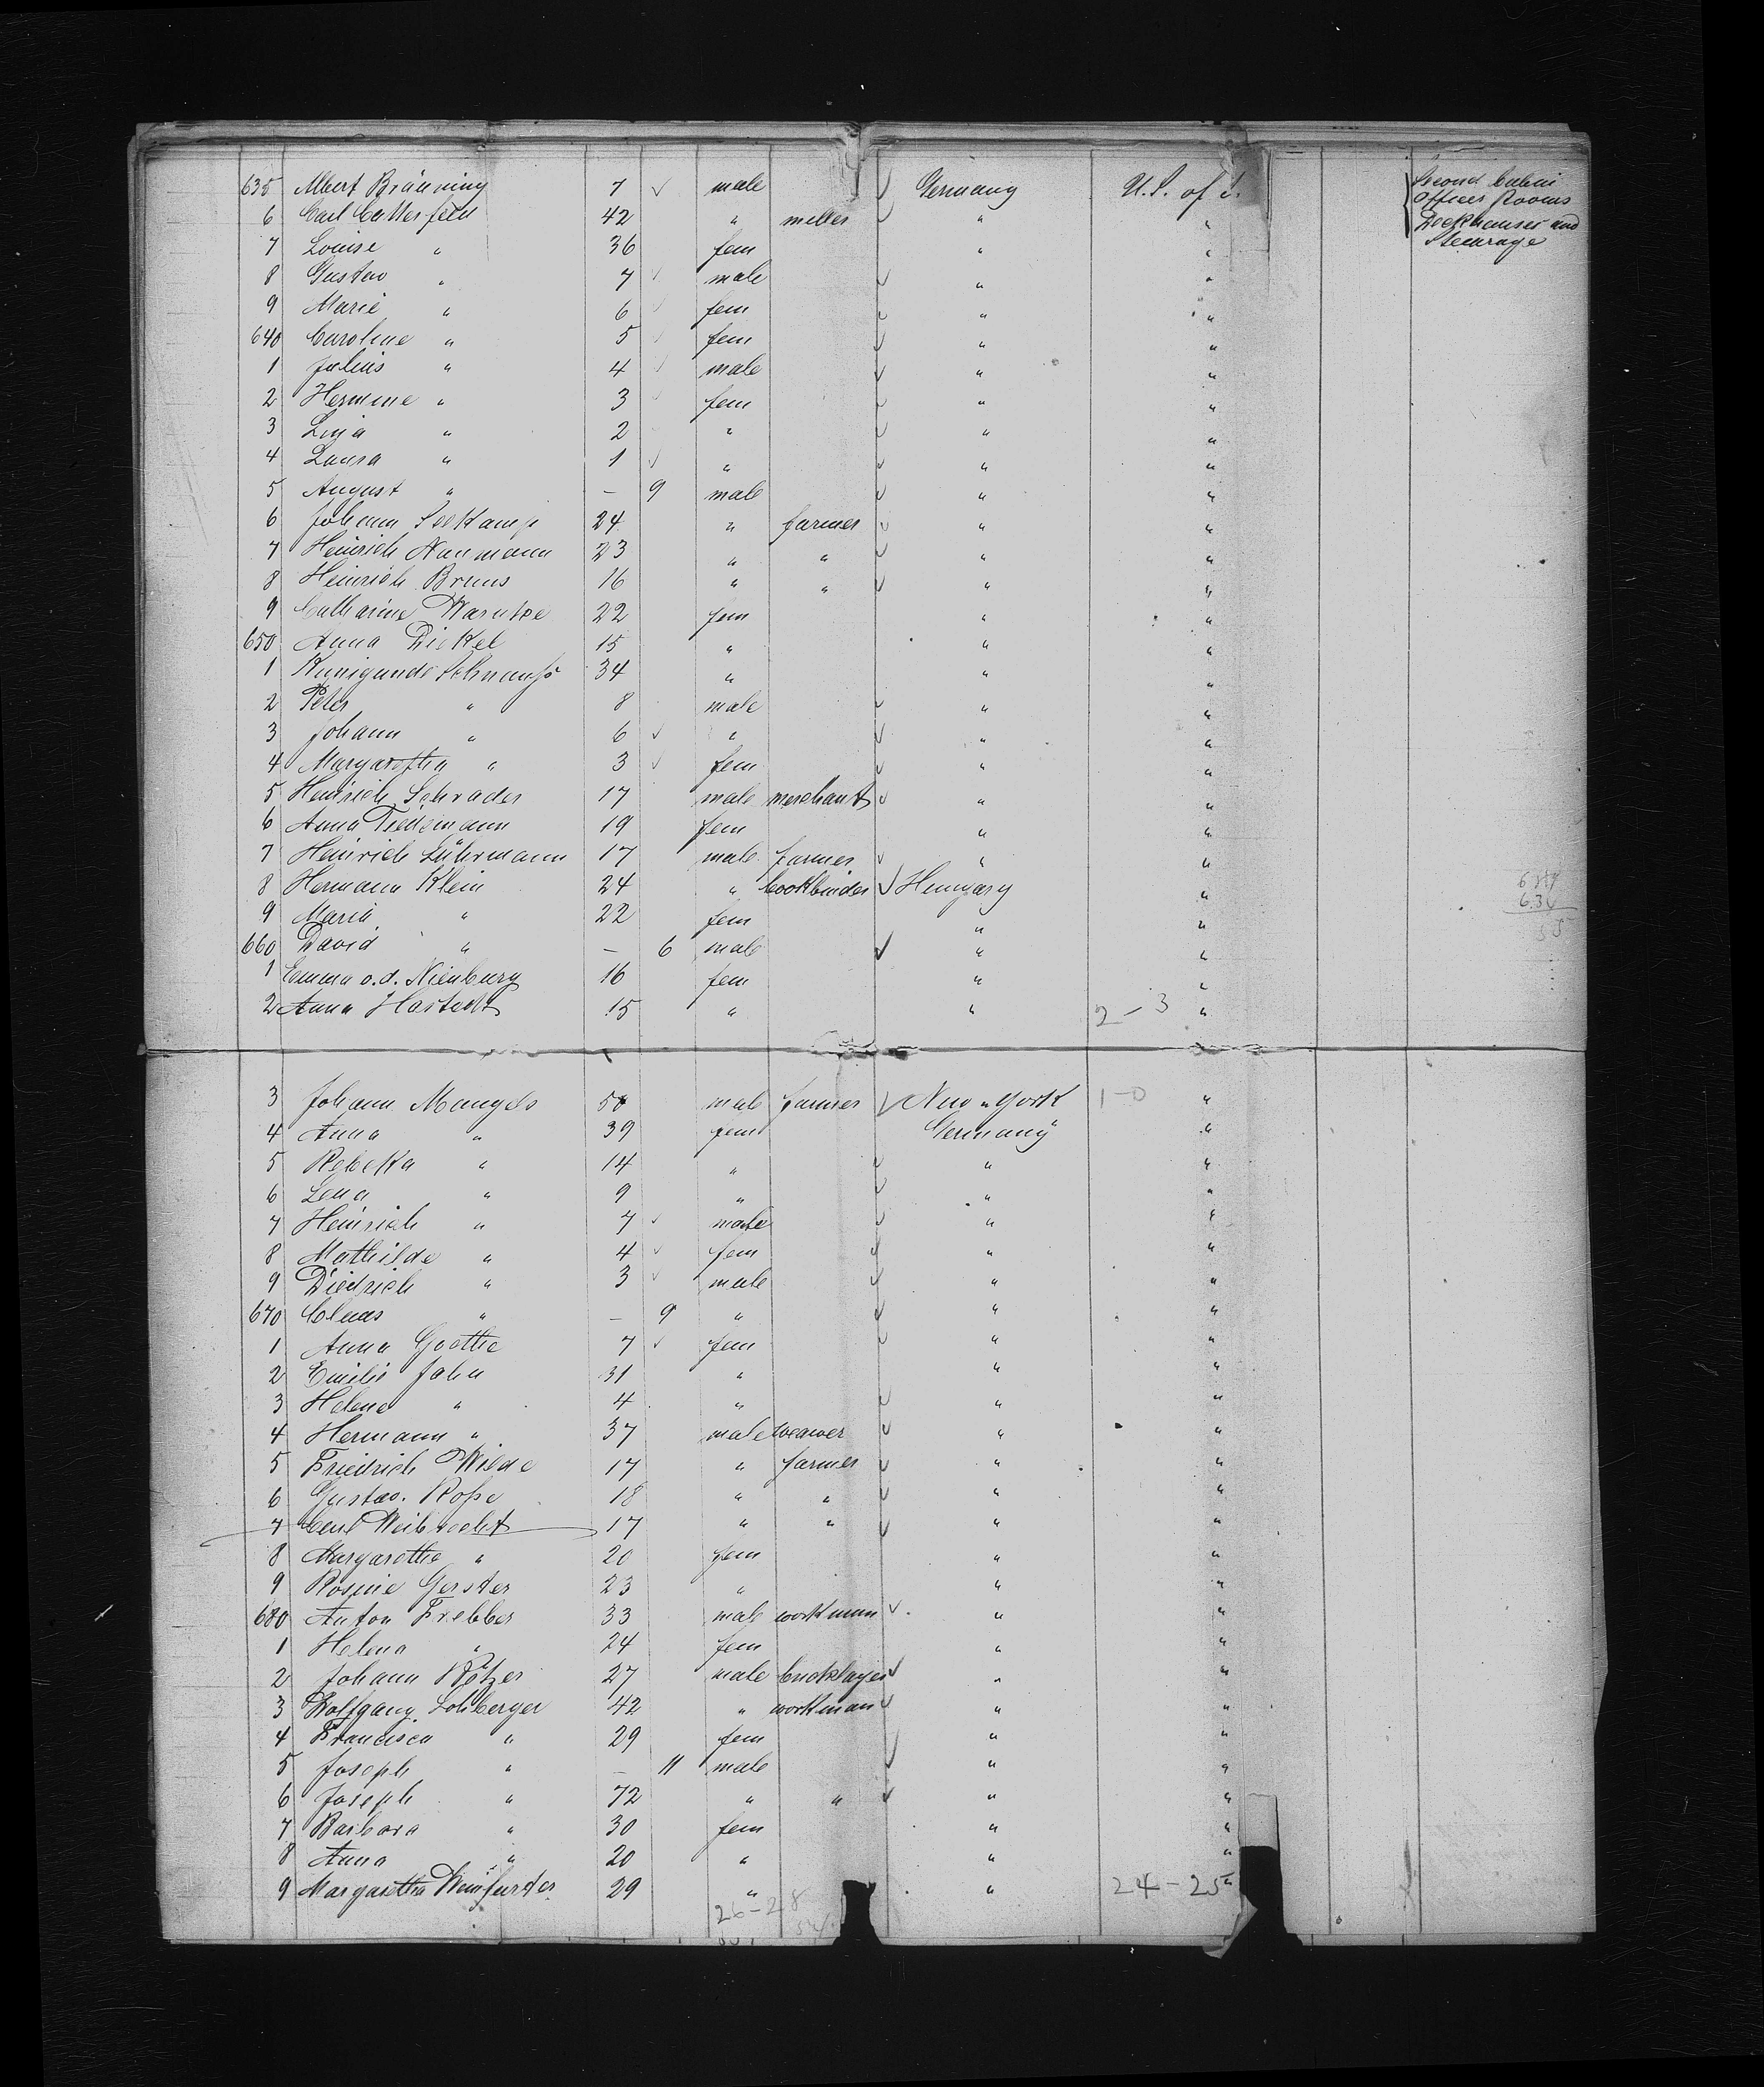 635 Albert Bräuning 7 ✓ male ✓ Germany U.S. of A. Second Cabin
6 Carl Catterfeld 42 " miller ✓ " " Officer Rooms
7 Louise " 36 fem " " Deckhauser and
8 Gustav " 7 ✓ male ✓ " " Steerage
9 Marie " 6 ✓ fem ✓ " "
640 Caroline " 5 ✓ fem ✓ " "
1 Julius " 4 ✓ male ✓ " "
2 Hermine " 3 ✓ fem ✓ " "
3 " 2 " ✓ " "
4 Laura " 1 ✓ " ✓ " "
5 August " — 9 male ✓ " "
6 Johann Seekamp 24 " farmer ✓ " "
7 Heinrich Naumann 23 " " ✓ " "
8 Heinrich Bruns 16 " " ✓ " "
9 Catharine Warnke 22 fem " "
650 Anna Dickel 15 " " "
1 Kunigunde 34 " " "
2 Peter " 8 male ✓ " "
3 Johann " 6 ✓ " ✓ " "
4 Margaretha " 3 ✓ fem ✓ " "
5 Heinrich Schrader 17 male merchant ✓ " "
6 Anna Tiedemann 19 fem " "
7 Heinrich Lührmann 17 male farmer ✓ " "
8 Hermann Klein 24 " bookbinder ✓ Hungary "
9 Maria " 22 fem " "
660 David " — 6 male ✓ " "
1 Emma v.d. Nienburg 16 fem " "
2 Anna Hastedt 15 " " 2-3 "
3 Johann Mangels 50 male farmer ✓ New-York 1-0 "
4 Anna " 39 fem Germany "
5 Rebeka " 14 " ✓ " "
6 Lena " 9 " ✓ " "
7 Heinrich " 7 ✓ male ✓ " "
8 Mathilde " 4 ✓ fem ✓ " "
9 Diedrich " 3 ✓ male ✓ " "
670 Claus " — 9 " ✓ " "
1 Anna Goethe 7 ✓ fem ✓ " "
2 Emilie Jahn 31 " " "
3 Helene " 4 " ✓ " "
4 Hermann " 37 male weawer ✓ " "
5 Friedrich Wilde 17 " farmer ✓ " "
6 Gustav. Roße 18 " " ✓ " "
7 Carl Weibrecht 17 " " ✓ " "
8 Margarethe " 20 fem " "
9 Rosine Gerster 23 " " "
680 Anton Frebber 33 male workman ✓ " "
1 Helena " 24 fem " "
2 Johann Rötzer 27 male bricklayer ✓ " "
3 Wolfgang Lohberger 42 " workman ✓ " "
4 Francisca " 29 fem " "
5 Joseph " — 11 male ✓ " "
6 Joseph " 72 " " ✓ " "
7 Barbara " 30 fem " "
8 Anna " 20 " " "
9 Margaretha Weinfurter 29 " " 24-25 "
26-28